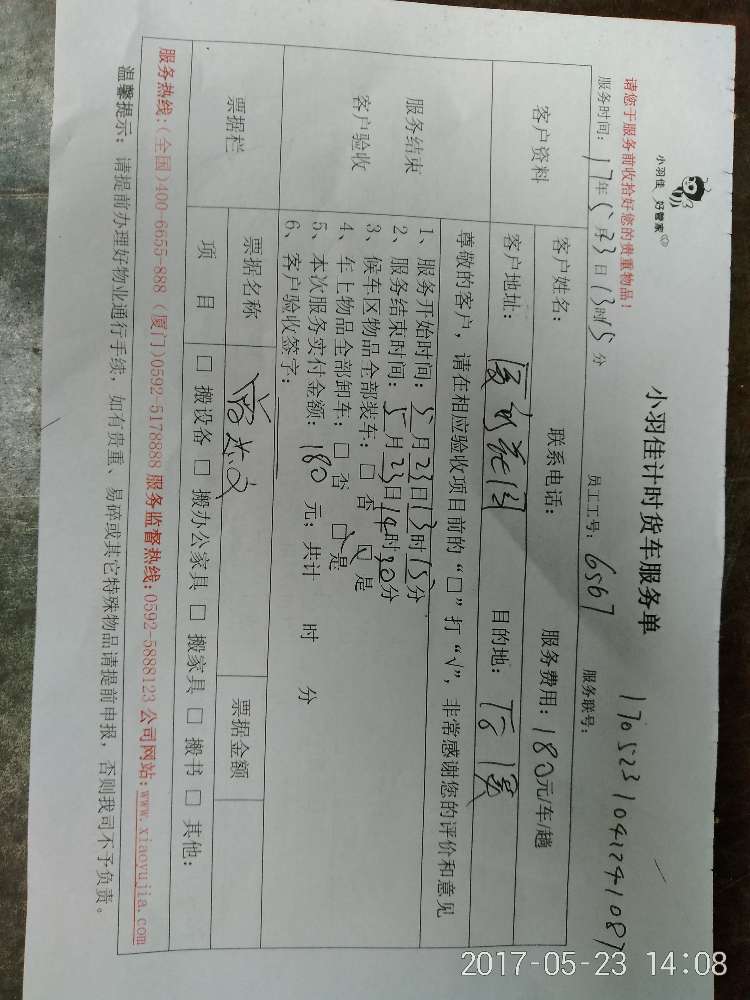 小羽佳 好管家
小羽佳计时货车服务单
1705231041241087
请您于服务前收拾好您的贵重物品！
服务时间：17年5月23日13时15分 员工工号：6567 服务联号：
客户资料
客户姓名： 联系电话： 服务费用：180元/车/趟
客户地址： 目的地：
服务结束
客户验收
尊敬的客户，请在相应验收项目前的“□”打“√”，非常感谢您的评价和意见
1、服务开始时间：5月23日13时15分
2、服务结束时间：5月23日14时20分
3、候车区物品全部装车：□否 □是
4、车上物品全部卸车：□否 □是
5、本次服务实付金额：180元；共计 时 分
6、客户验收签字：
票据栏
票据名称 票据金额
项目 □搬设备 □搬办公家具 □搬家具 □搬书 □其他：
服务热线：(全国)400-6655-888 (厦门)0592-5178888 服务监督热线：0592-5888123 公司网站：www.xiaoyujia.com
温馨提示：请提前办理好物业通行手续，如有贵重、易碎或其它特殊物品请提前申报，否则我司不予负责。
2017-05-23 14:08